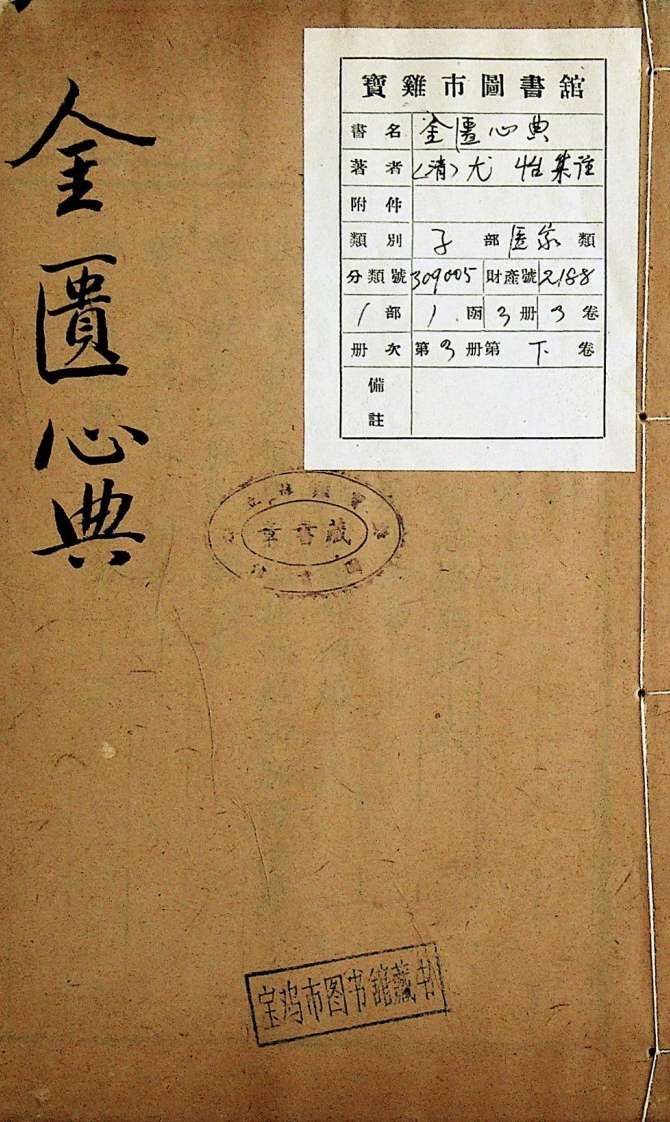 金匱心典
寶雞市圖書舘
書名 金匱心典
著者 (清)尤怡集注
附件
類別 子部医家類
分類號 309005 財產號 2188
1部 1函 3册 3卷
册次 第3册第下卷
備註
藏書章
宝鸡市图书馆藏书